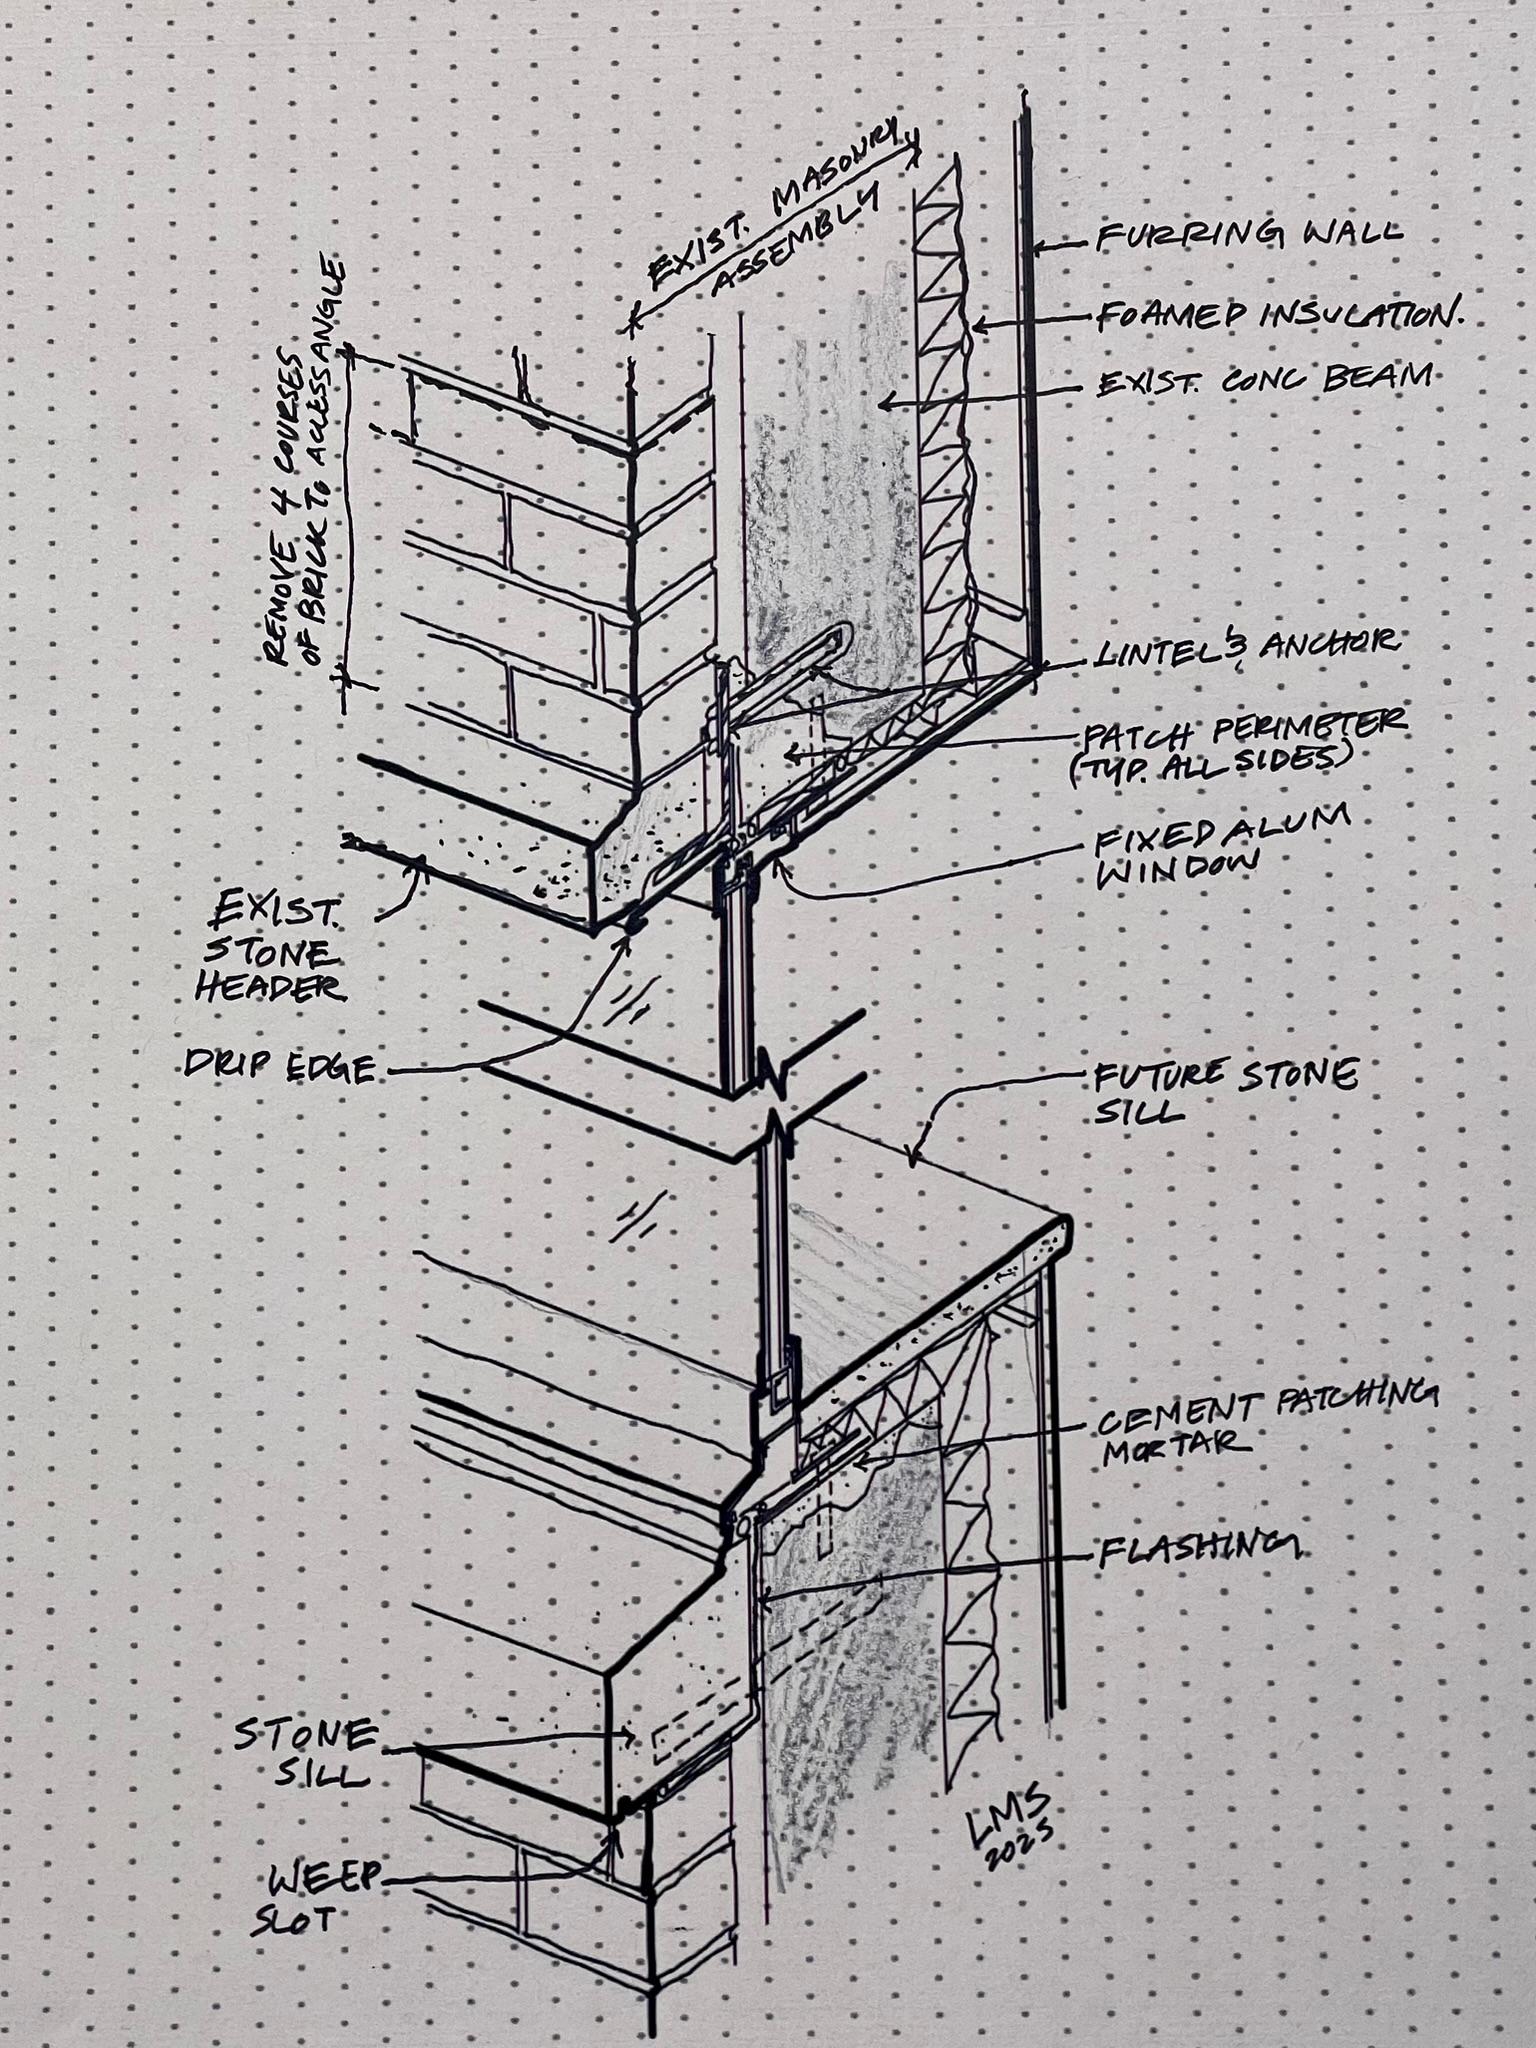 EXIST. MASONRY
ASSEMBLY
REMOVE 4 COURSES
OF BRICK TO ACCESS ANGLE
FURRING WALL
FOAMED INSULATION.
EXIST. CONC BEAM
LINTEL & ANCHOR
PATCH PERIMETER
(TYP. ALL SIDES)
FIXED ALUM
WINDOW
EXIST.
STONE
HEADER
DRIP EDGE
FUTURE STONE
SILL
CEMENT PATCHING
MORTAR
FLASHING
STONE
SILL
WEEP
SLOT
LMS
2025